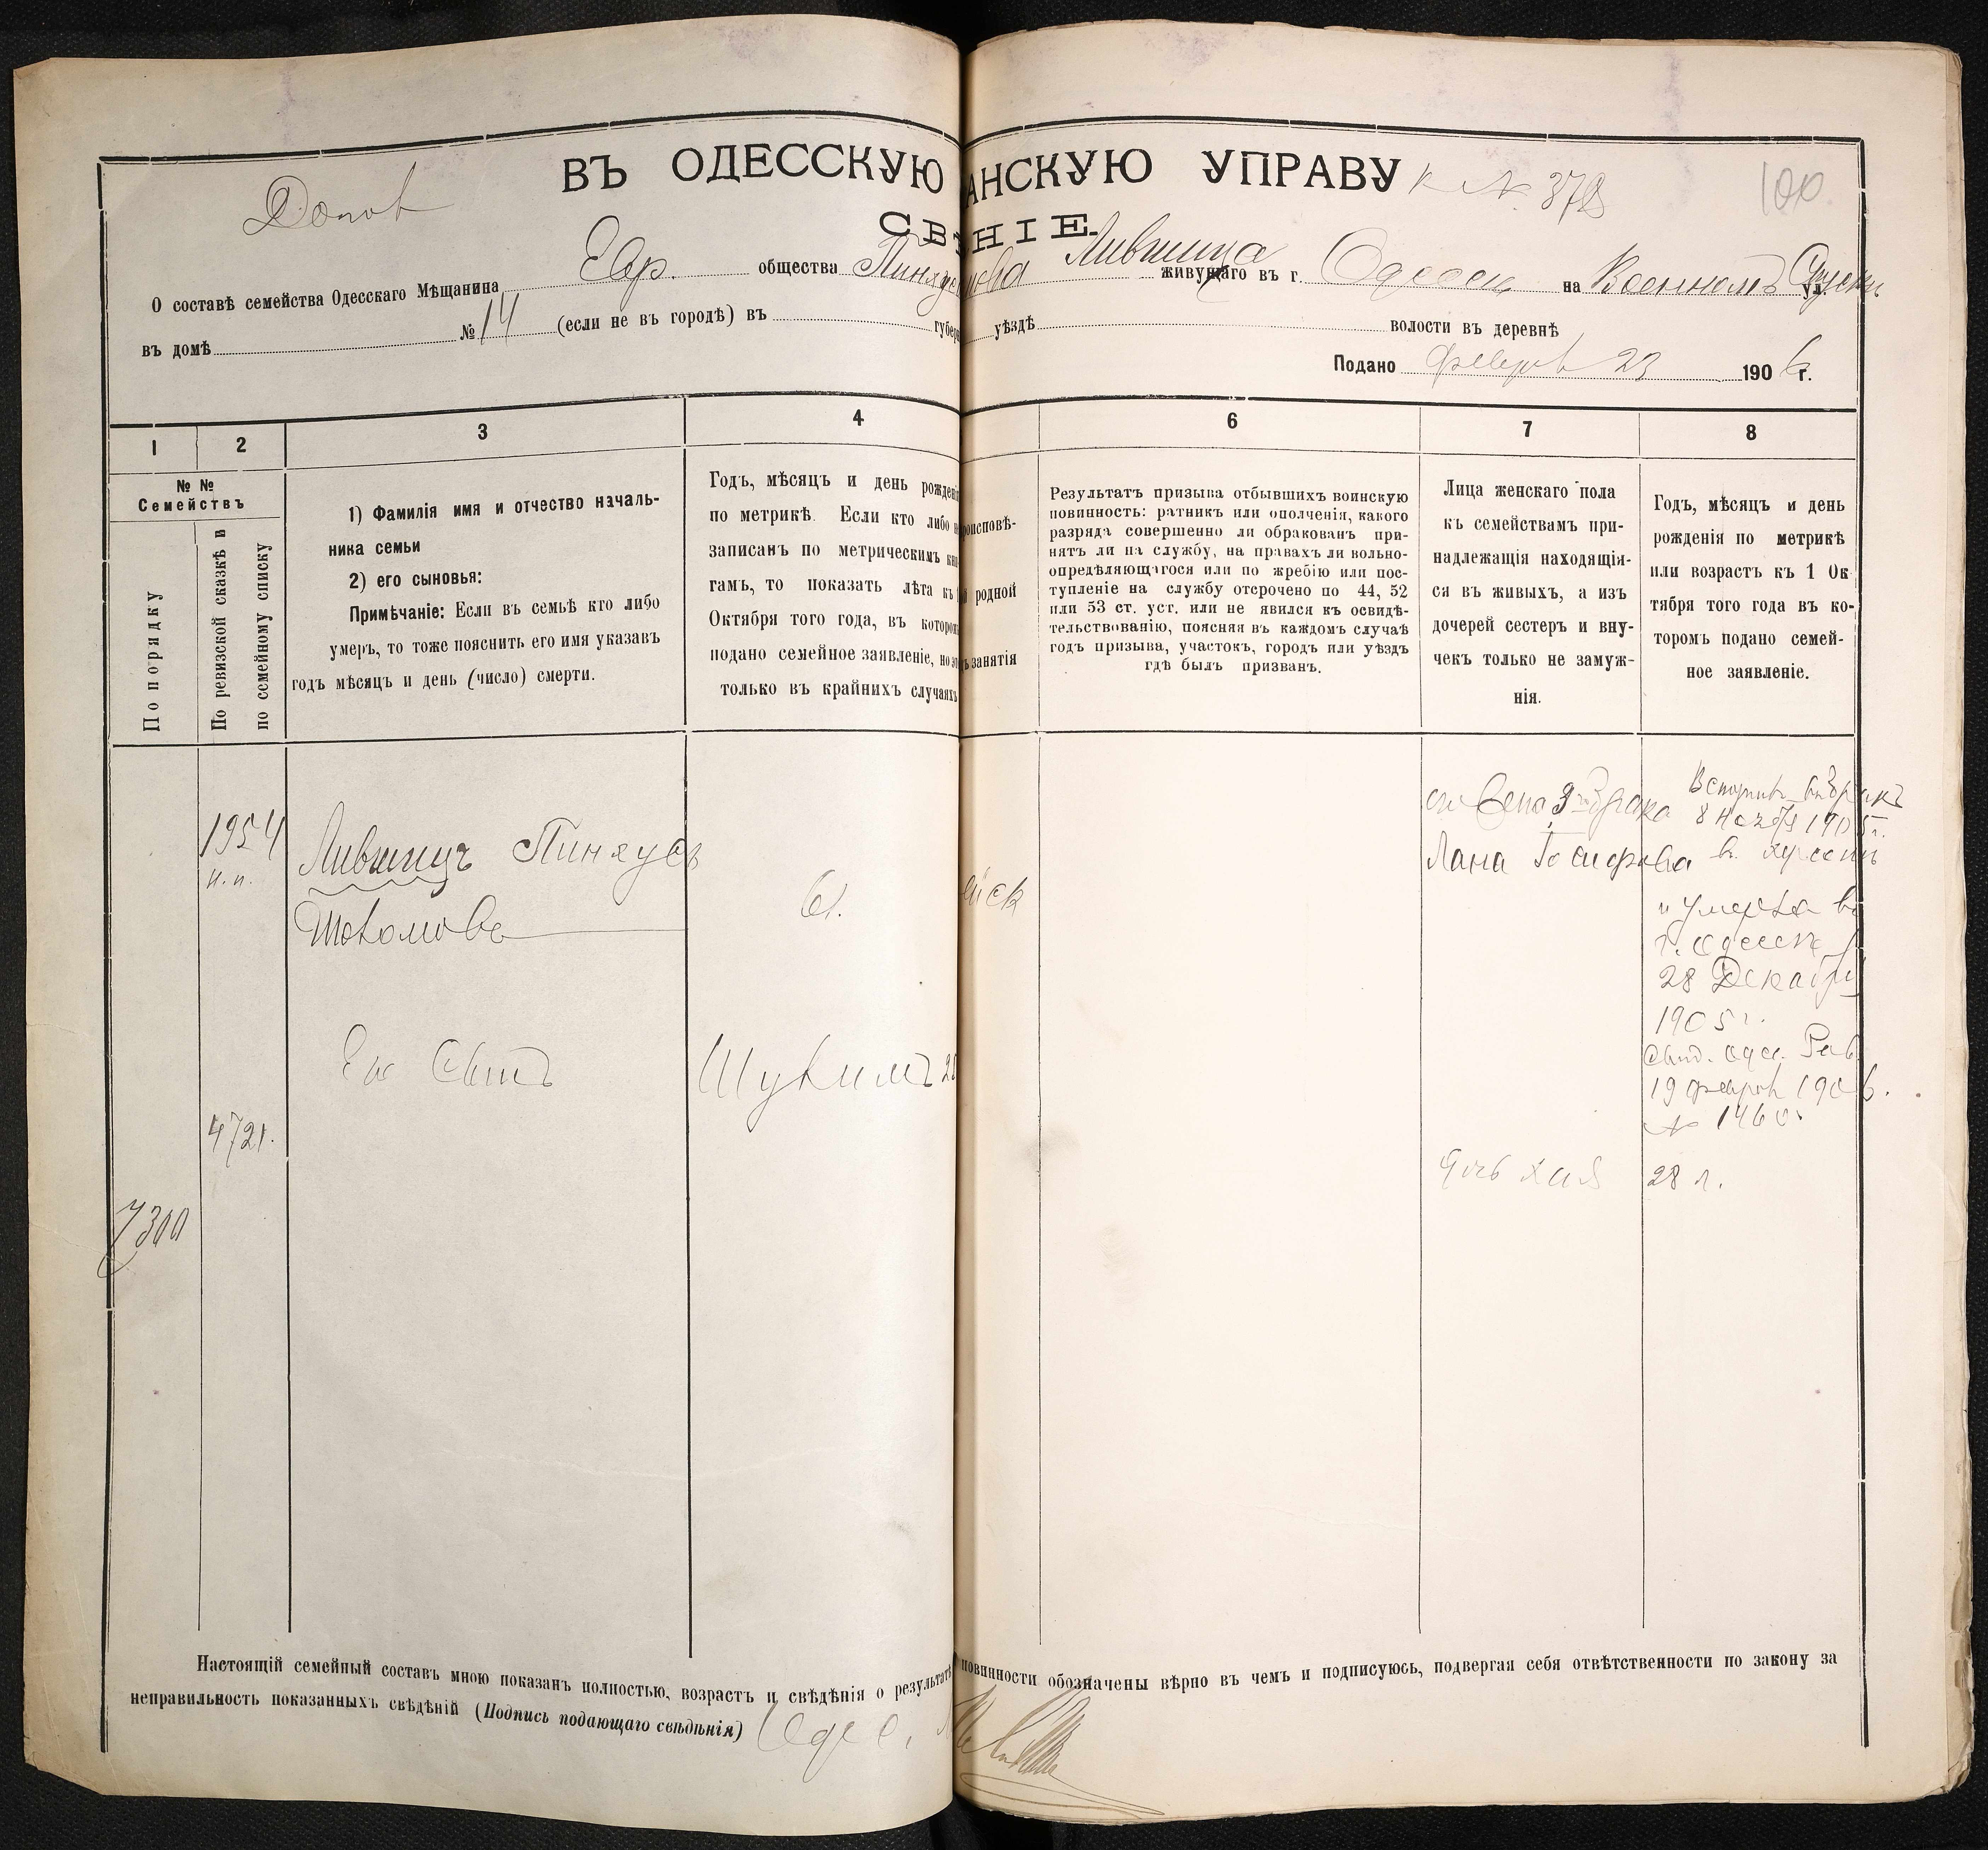 ВЪ ОДЕССКУЮ АНСКУЮ УПРАВУ к № 378
100
Допов
СВѢ НІЕ.
О составѣ семейства Одесскаго Мѣщанина Евр. общества Пинхусова Лившица живущаго въ г. Одессе на Военномъ Спуске ул.
въ домѣ № 14 (если не въ городѣ) въ губер уѣздѣ волости въ деревнѣ
Подано Феврал 23 1906 г.
1 2 3 4 6 7 8
№ № Семействъ
По порядку
По ревизской сказкѣ и по семейному списку
1) Фамилія имя и отчество началь-
ника семьи
2) его сыновья:
Примѣчаніе: Если въ семьѣ кто либо
умеръ, то тоже пояснить его имя указавъ
годъ мѣсяцъ и день (число) смерти.
Годъ, мѣсяцъ и день рожденія
по метрикѣ. Если кто либо не
записанъ по метрическимъ кни-
гамъ, то показать лѣта къ 1
Октября того года, въ которомъ
подано семейное заявленіе, но это
только въ крайнихъ случаяхъ
роисповѣ-
й родной
ъ занятія
Результатъ призыва отбывшихъ воинскую
повинность: ратникъ или ополченія, какого
разряда совершенно ли обракованъ при-
нятъ ли на службу, на правахъ ли вольно-
опредѣляющагося или по жребію или пос-
тупленіе на службу отсрочено по 44, 52
или 53 ст. уст. или не явился къ освидѣ-
тельствованію, поясняя въ каждомъ случаѣ
годъ призыва, участокъ, городъ или уѣздъ
гдѣ былъ призванъ.
Лица женскаго пола
къ семействамъ при-
надлежащія находящія-
ся въ живыхъ, а изъ
дочерей сестеръ и вну-
чекъ только не замуж-
нія.
Годъ, мѣсяцъ и день
рожденія по метрикѣ
или возрастъ къ 1 Ок
тября того года въ ко-
торомъ подано семей-
ное заявленіе.
1954
н. п.
Лившицъ Пинхусъ
Шоломовъ
61.
ейск
его жена 3го брака
Лана Іосифова
Вступив. въ бракъ
8 Нояб 1905г.
в. Херсонъ
и умерла въ
г. Одессе
28 Декабря
1905 г.
Свид. Одес. Рав.
19 феврал 1906.
№ 1460
4721.
7300
дочь Хая
28 л.
Настоящій семейный составъ мною показанъ полностью, возрастъ и свѣдѣнія о результатѣ повинности обозначены вѣрно въ чемъ и подписуюсь, подвергая себя отвѣтственности по закону за
неправильность показанныхъ свѣдѣній (Подпись подающаго свѣдѣнія)